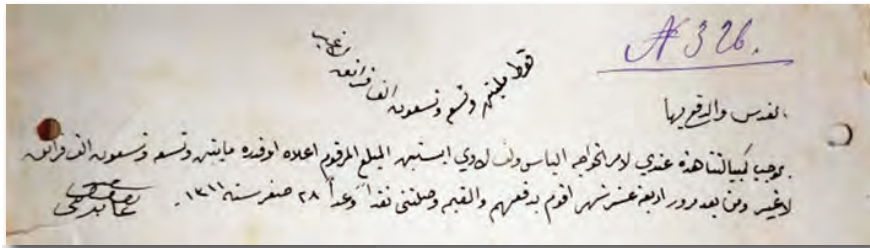 № 326.
فقط مايتين وتسعه وتسعون الف فرانق
لا غير
القدس والدفع بها
بموجب كمبيالتنا هذه عندي لامر الخواجه الياس ولف لاوي ابستين المبلغ المرقوم اعلاه اوقدره مايتين وتسعه وتسعون الف فرانق
لا غير ومن بعد مرور اربعة عشر شهر اقوم بدفعهم والقيمه وصلتني نقداً وعداً ٢٨ صفر سنة ١٣١١.